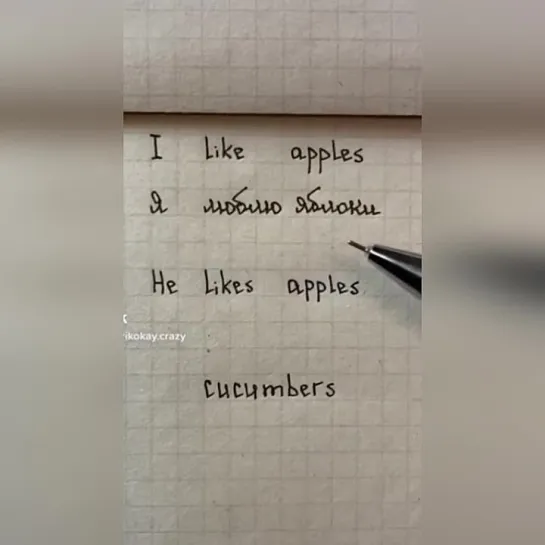 I like apples
Я люблю яблоки
He likes apples
ikokay.crazy
cucumbers